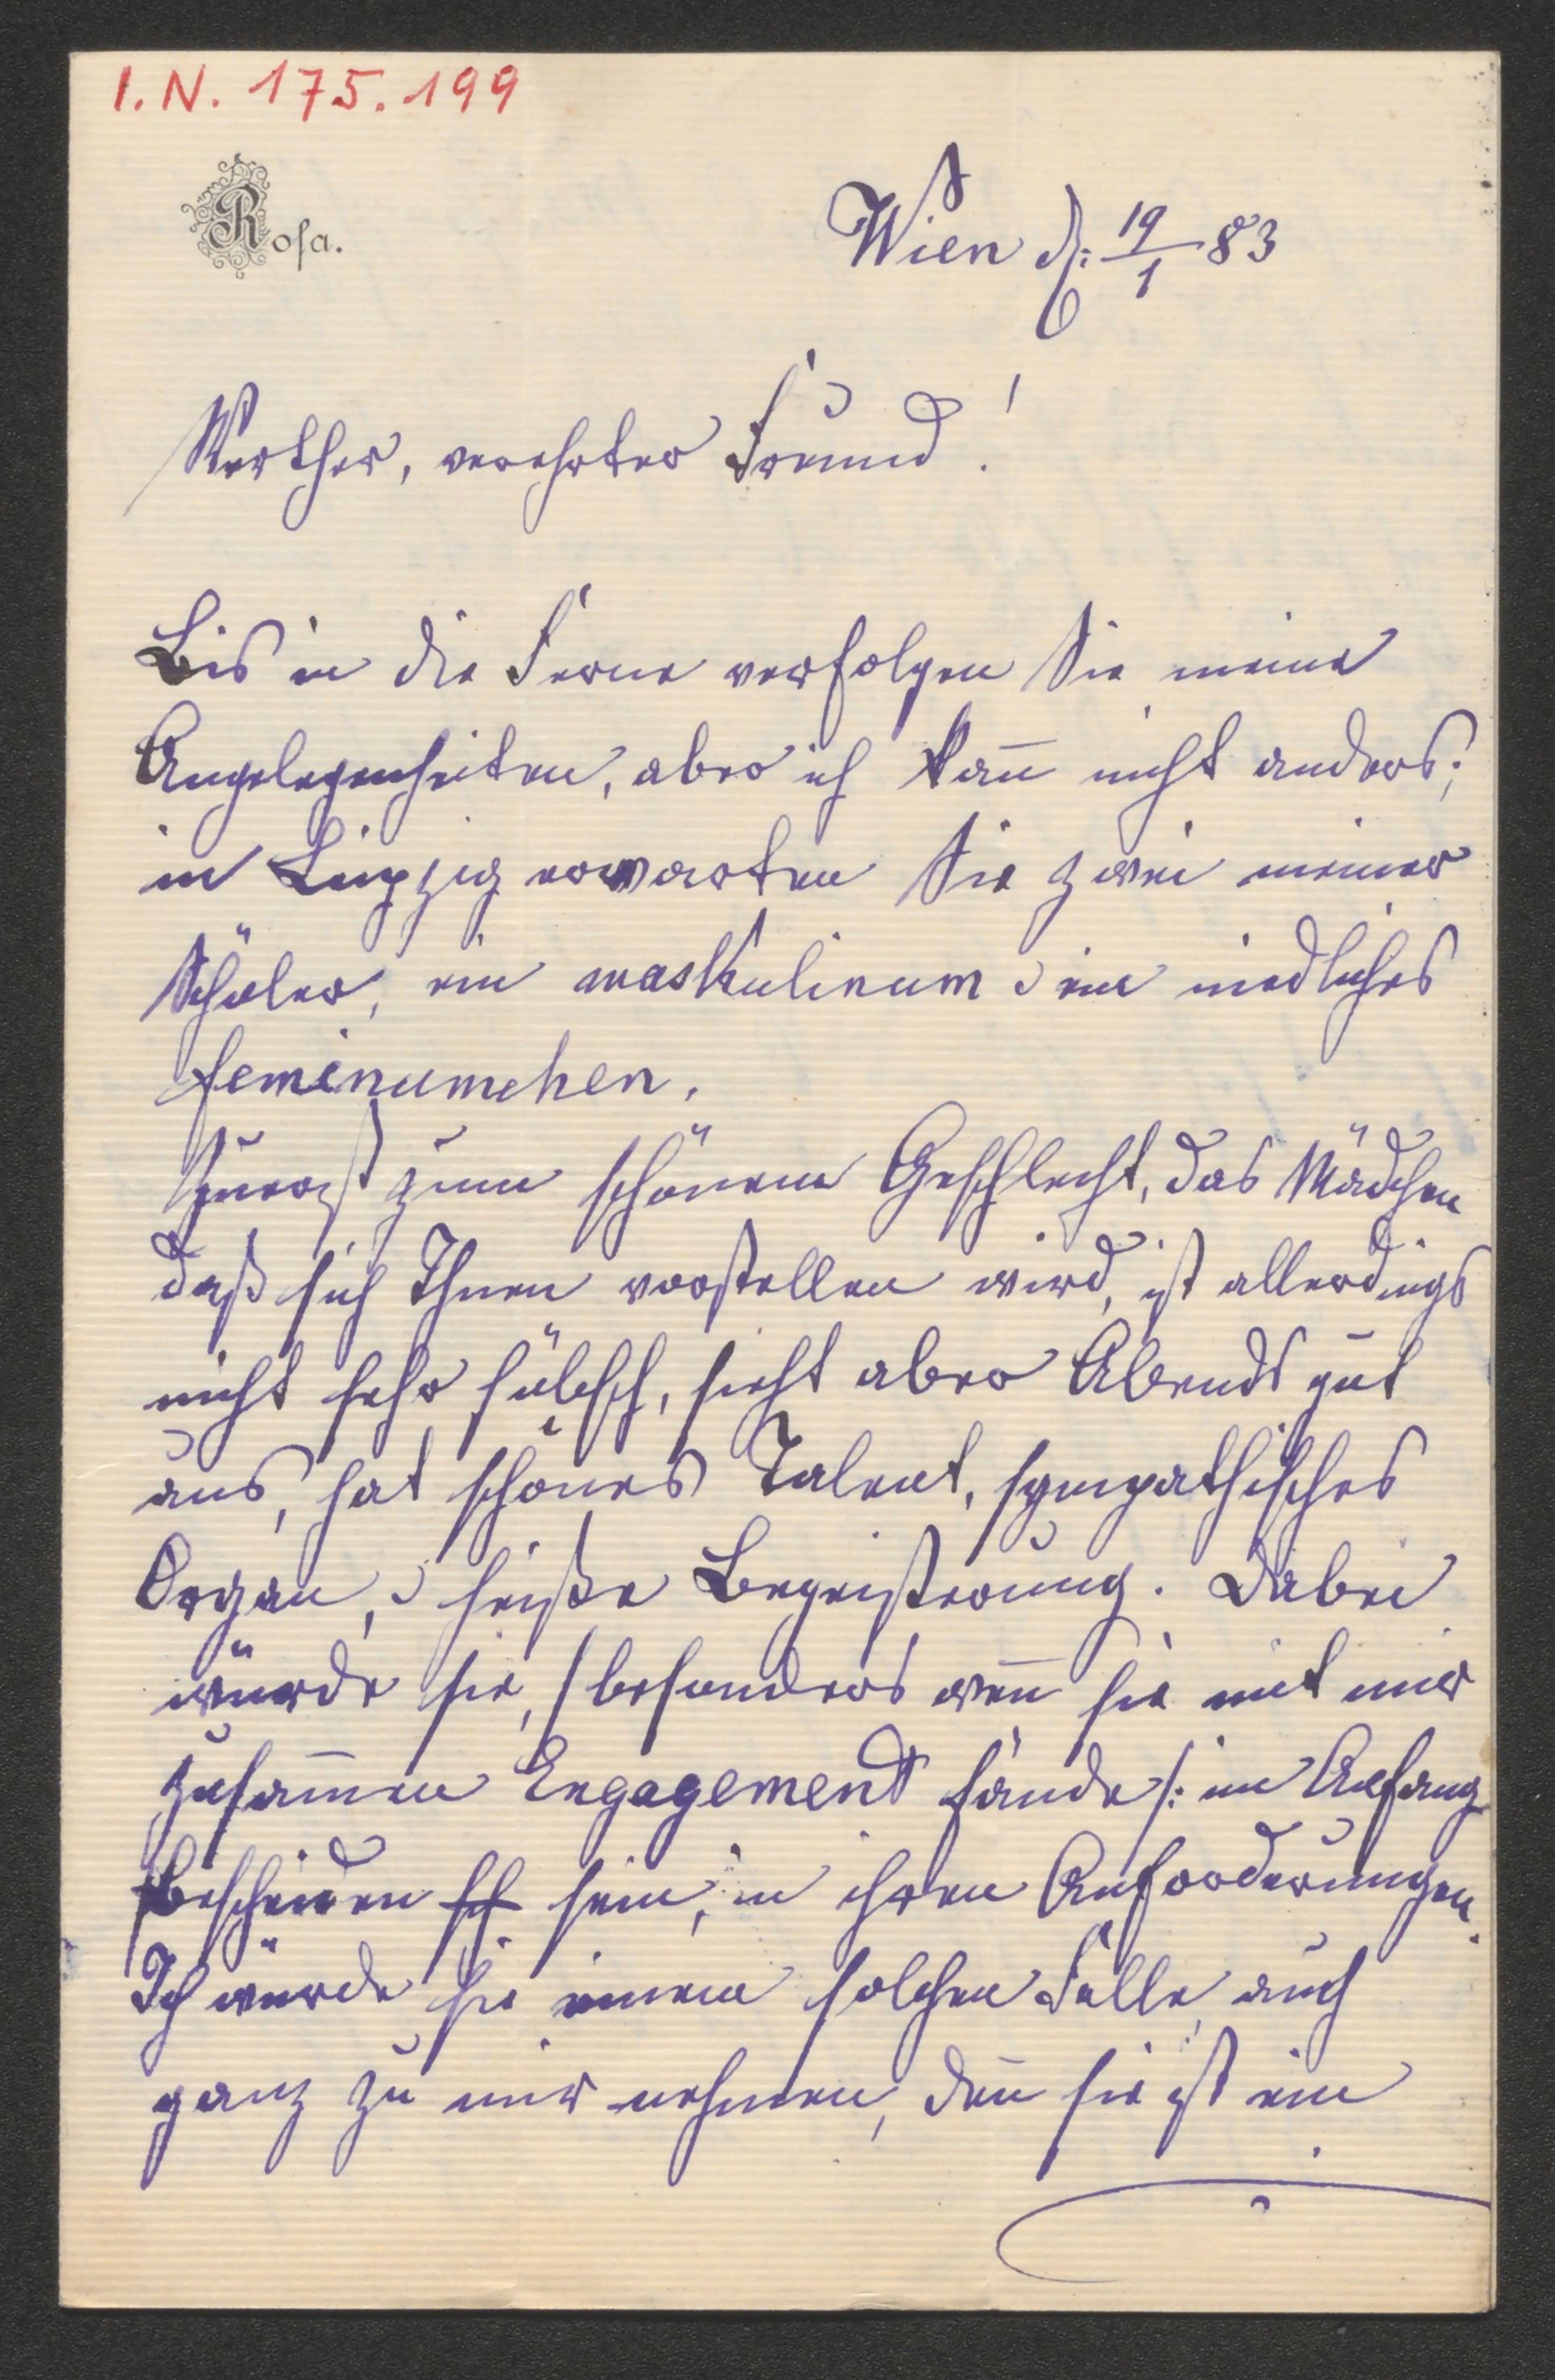 I. N. 175.199
Rosa.
Wien d: 19/1 83
Werther, verehrter Freund!
Bis in die Ferne verfolgen Sie meine
Angelegenheiten, aber ich kan̄ nicht anders;
in Leipzig erwarten Sie zwei meiner
Schüler, ein maskulinum u ein niedliches
femininumchen.
Zuerst zum schönem Geschlecht, das Mädchen
daß sich Ihnen vorstellen wird, ist allerdings
nicht sehr hübsch, sieht aber Abends gut
aus, hat schönes Talent, sympathisches
Organ, u heiße Begeisterung. Dabei
würde sie, /besonders wen̄ sie mit mir
zusam̄en Engagement fände/: im Anfang
bescheiden sein, in ihren Anforderungen.
Ich würde sie einem solchen Falle auch
ganz zu mir nehmen, den̄ sie ist ein